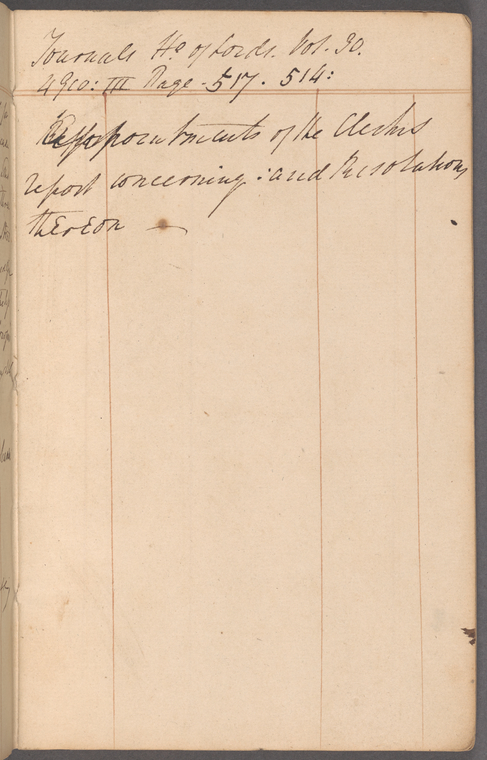 Journals Ho. of Lords. Vol. 30.
4 Geo: III Page - 517. 514:
Appointments of the Clerks
report concerning: and Resolutions
thereon —